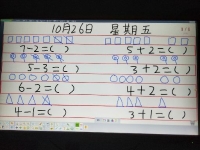 10月26日 星期五
7-2=( ) 5+2=( )
5-3=( ) 3+2=( )
6-2=( ) 4+2=( )
4-1=( ) 3+1=( )